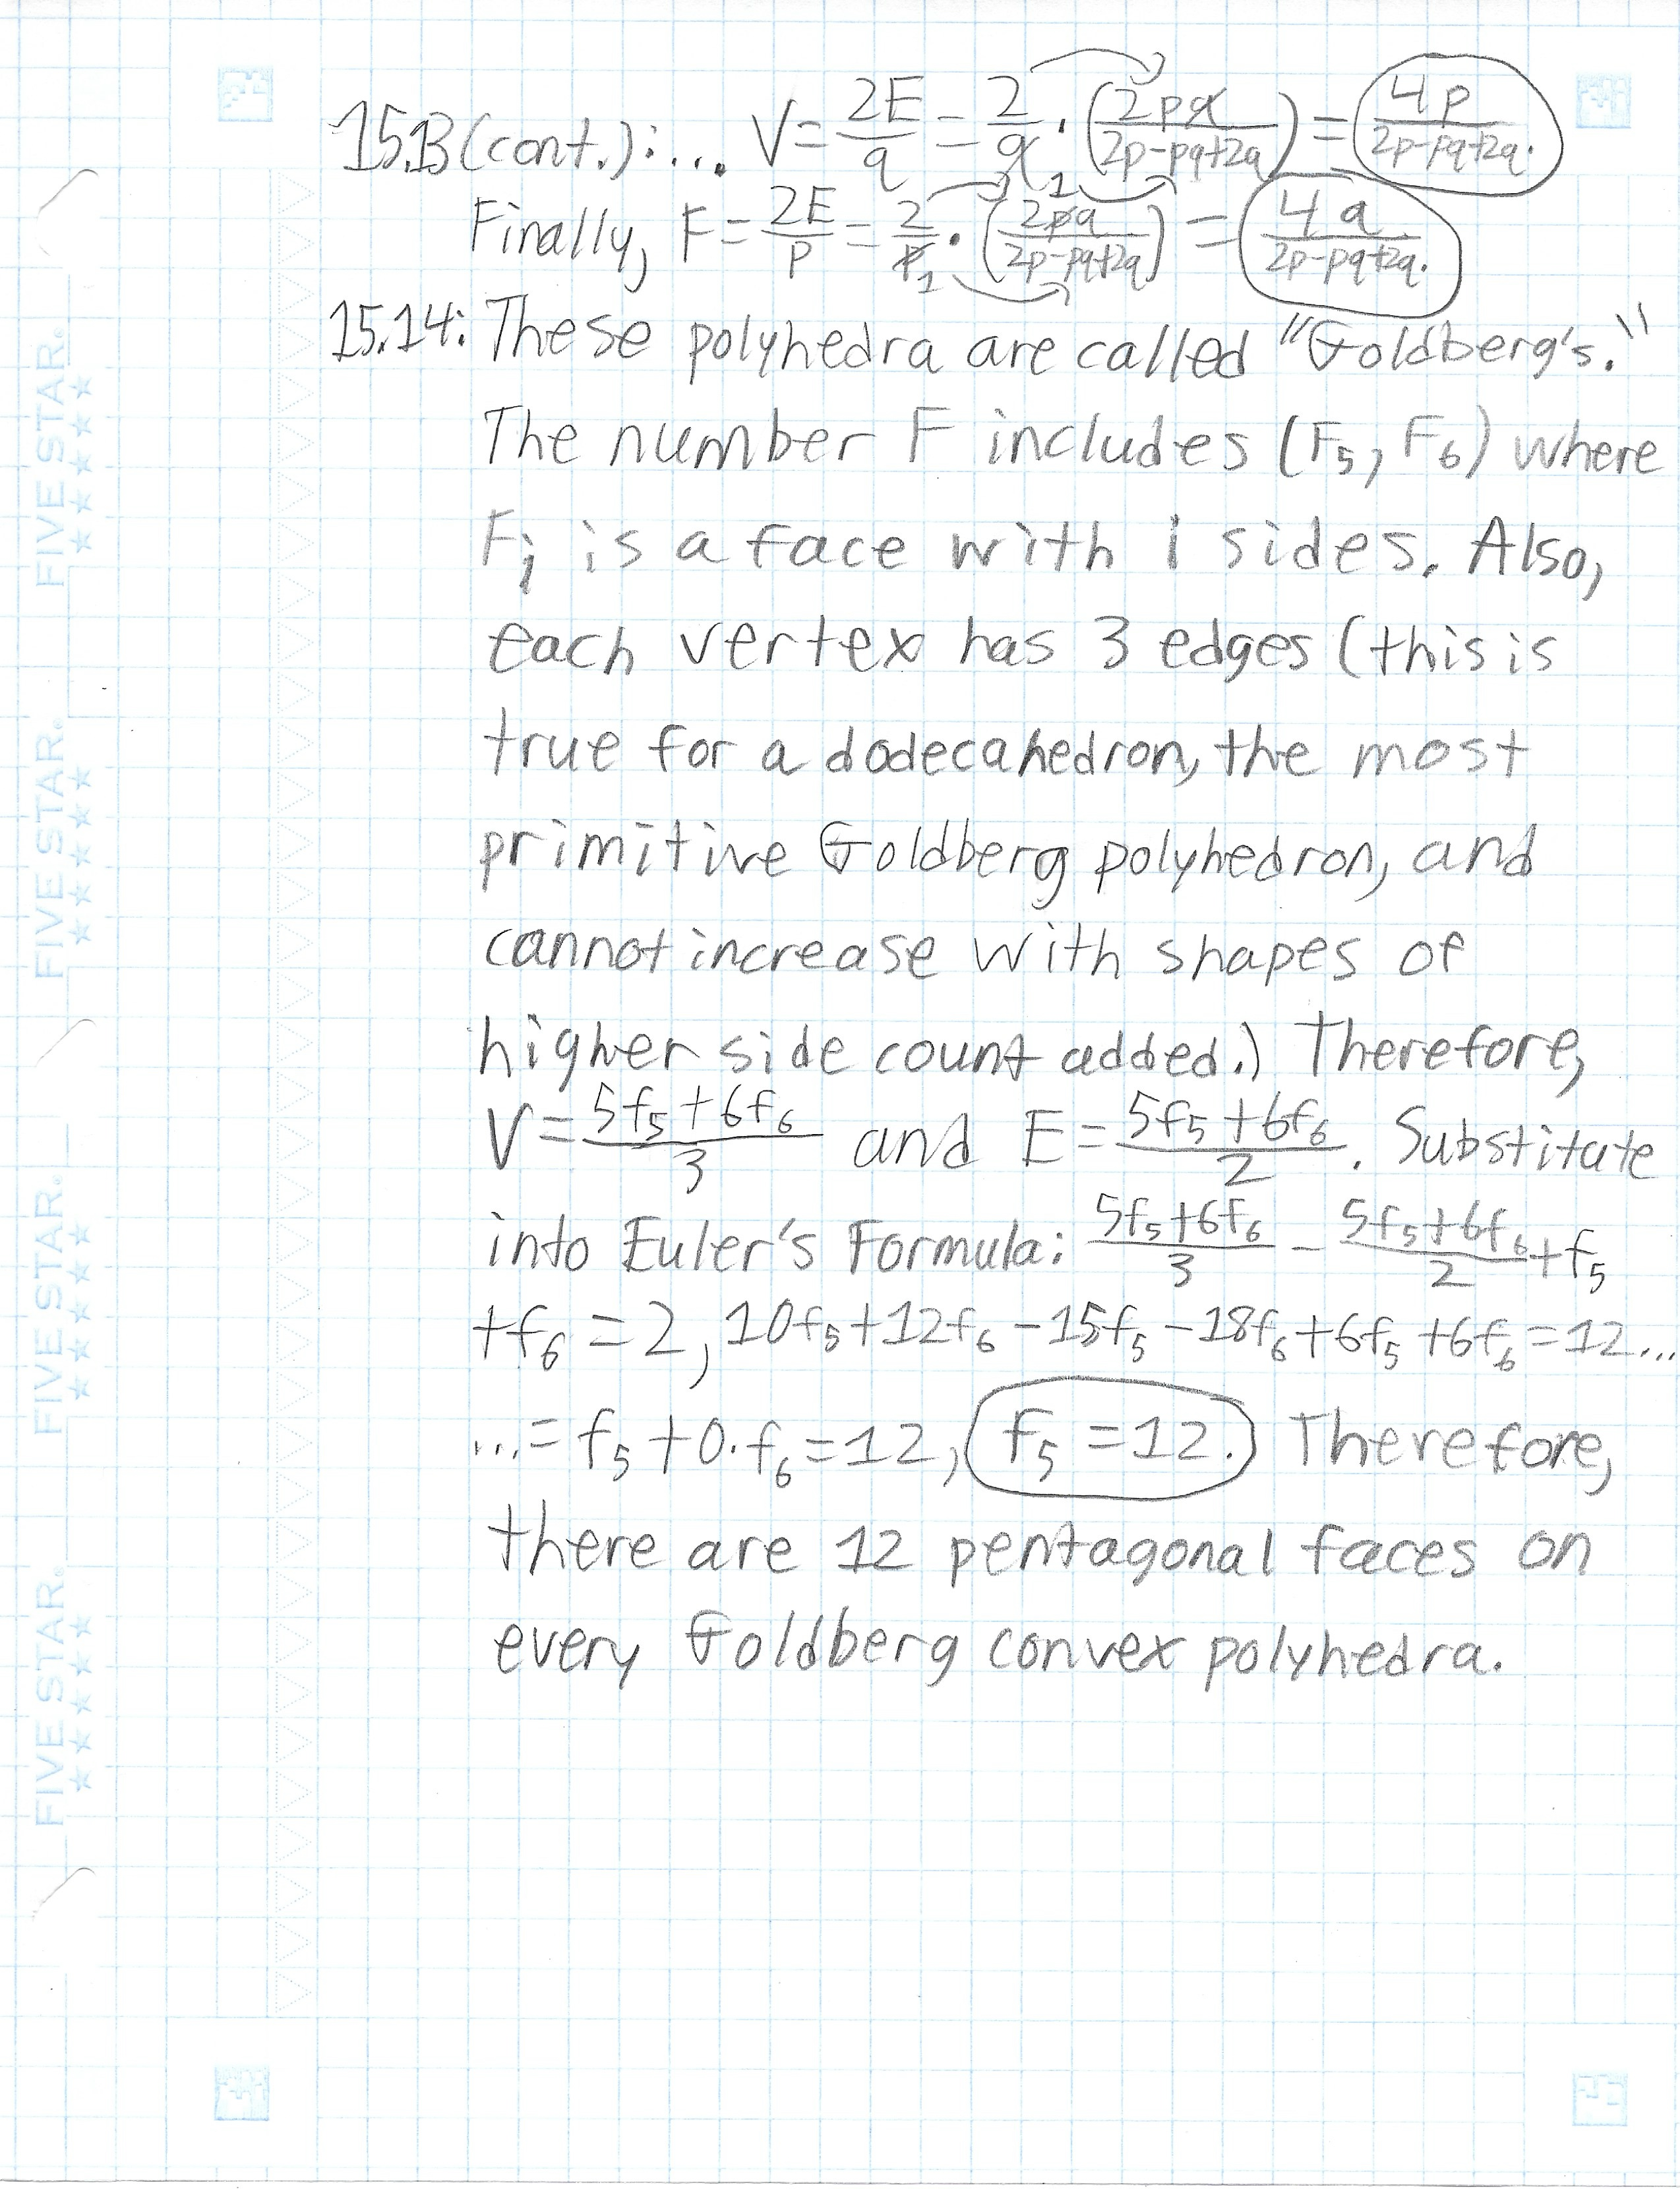 15.13 (cont.): ... V = 2E/q = 2/q₁ · (2pq/(2p-pq+2q)) = 4p/(2p-pq+2q).
Finally, F = 2E/p = 2/p₁ · (2pq/(2p-pq+2q)) = 4q/(2p-pq+2q).
15.14: These polyhedra are called "Goldberg's."
The number F includes (F₅, F₆) where
Fᵢ is a face with i sides. Also,
each vertex has 3 edges (this is
true for a dodecahedron, the most
primitive Goldberg polyhedron, and
cannot increase with shapes of
higher side count added.) Therefore,
V = (5f₅+6f₆)/3 and E = (5f₅+6f₆)/2. Substitute
into Euler's Formula: (5f₅+6f₆)/3 - (5f₅+6f₆)/2 + f₅
+f₆ = 2, 10f₅+12f₆-15f₅-18f₆+6f₅+6f₆=12...
...= f₅+0·f₆=12, f₅=12. Therefore,
there are 12 pentagonal faces on
every Goldberg convex polyhedra.
FIVE STAR.
FIVE STAR.
FIVE STAR.
FIVE STAR.